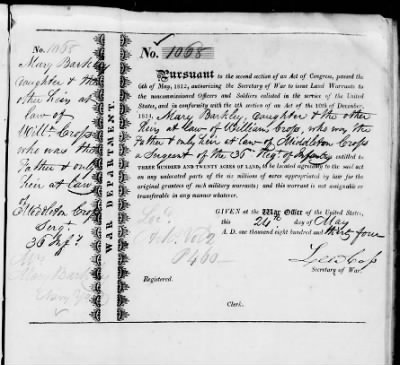 No. 1068
Mary Barkley
daughter & the
other heir at
law of
Willm. Cross
who was the
Father & only
heir at law
of
Middleton Cross
Sergt.
36 Infy.
Mary Barkley
WAR DEPARTMENT.
No. 1068
Pursuant to the second section of an Act of Congress, passed the
6th of May, 1812, authorising the Secretary of War to issue Land Warrants to
the noncommissioned Officers and Soldiers enlisted in the service of the United
States, and in conformity with the 4th section of an Act of the 10th of December,
1814, Mary Barkley, daughter & the other
Heirs at law of William Cross, who was the
Father & only heir at law of Middleton Cross
a Sergeant of the 36 Regt. of Infantry entitled to
THREE HUNDRED AND TWENTY ACRES OF LAND, to be located agreeably to the said act
on any unlocated parts of the six millions of acres appropriated by law for the
original grantees of such military warrants; and this warrant is not assignable or
transferable in any manner whatever.
GIVEN at the War Office of the United States,
this 24th day of May
A. D. one thousand eight hundred and thirty four
Lew Cass
Secretary of War.
Vol 2
P 460
Registered.
Clerk.